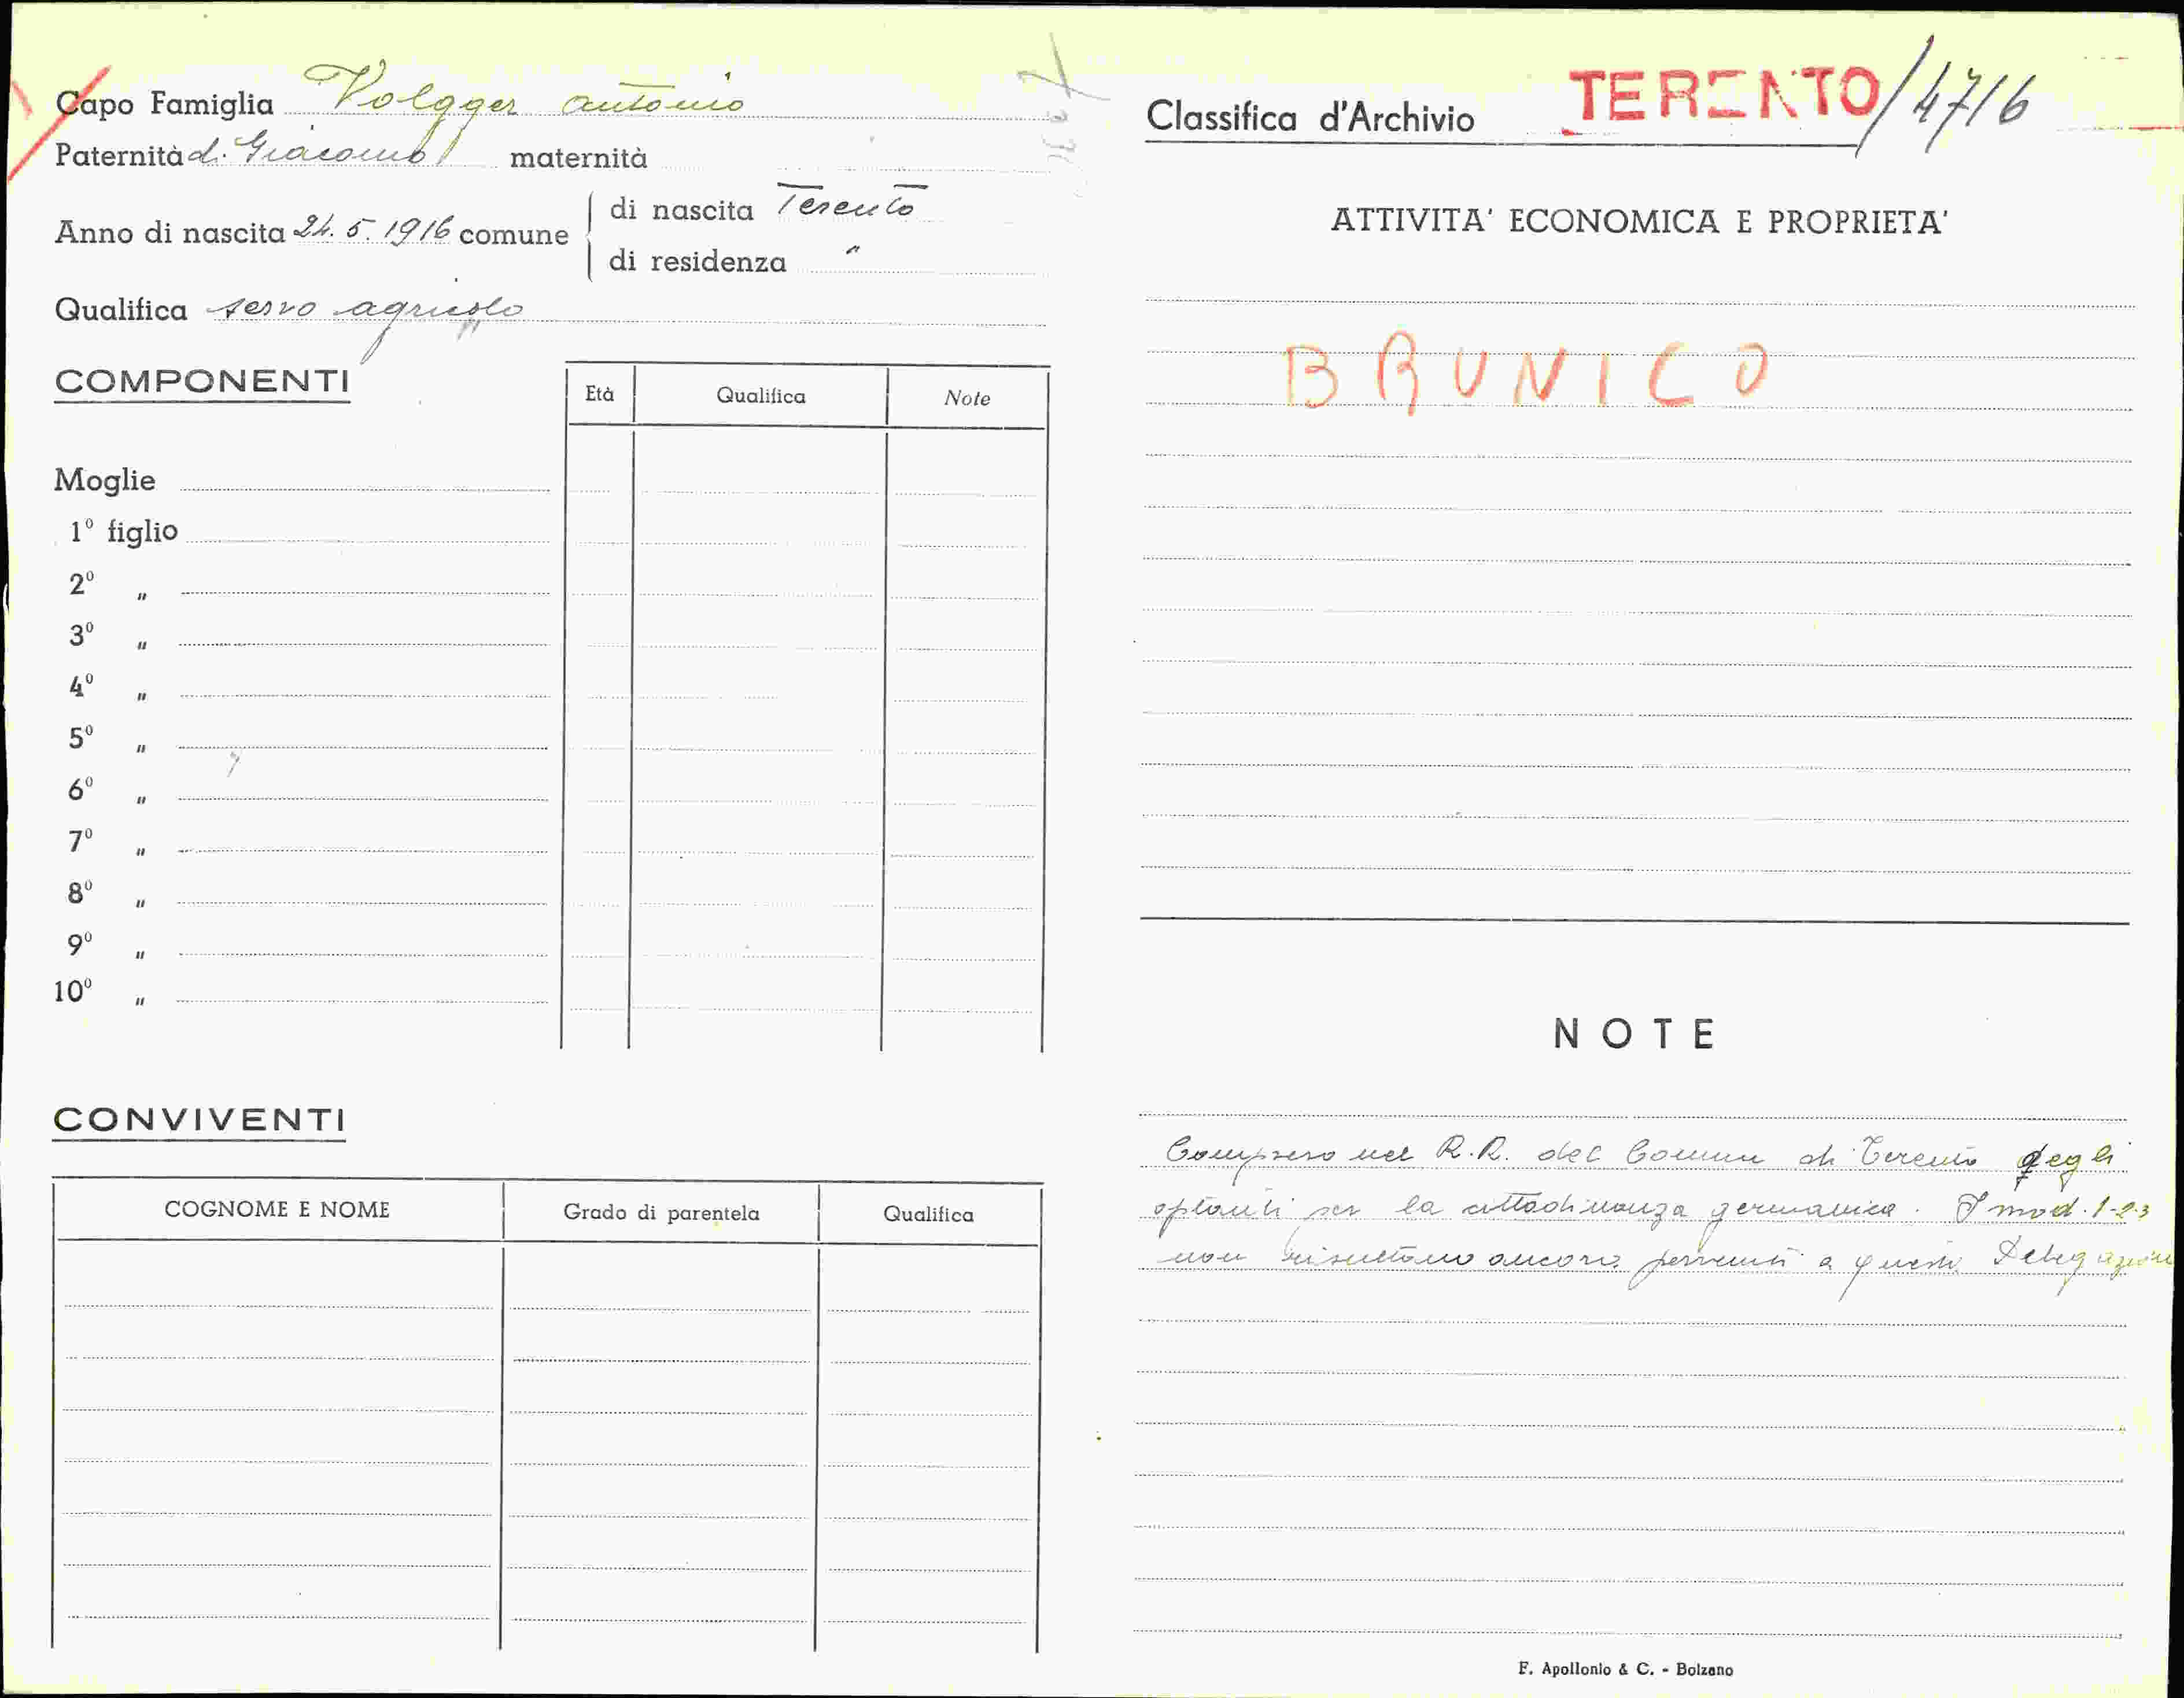 Capo Famiglia Volgger Antonio
Paternità di Giacomo maternità
Anno di nascita 24.5.1916 comune
di nascita Terento
di residenza "
Qualifica servo agricolo
COMPONENTI
Età Qualifica Note
Moglie
1º figlio
2º "
3º "
4º "
5º "
6º "
7º "
8º "
9º "
10º "
CONVIVENTI
COGNOME E NOME Grado di parentela Qualifica
Classifica d'Archivio TERENTO/4716
ATTIVITA' ECONOMICA E PROPRIETA'
BRUNICO
NOTE
Compreso nel R.R. del Comune di Terento degli
optanti per la cittadinanza germanica. I mod. 1-2-3
non risultano ancora pervenuti a questa Delegazione
F. Apollonio & C. - Bolzano